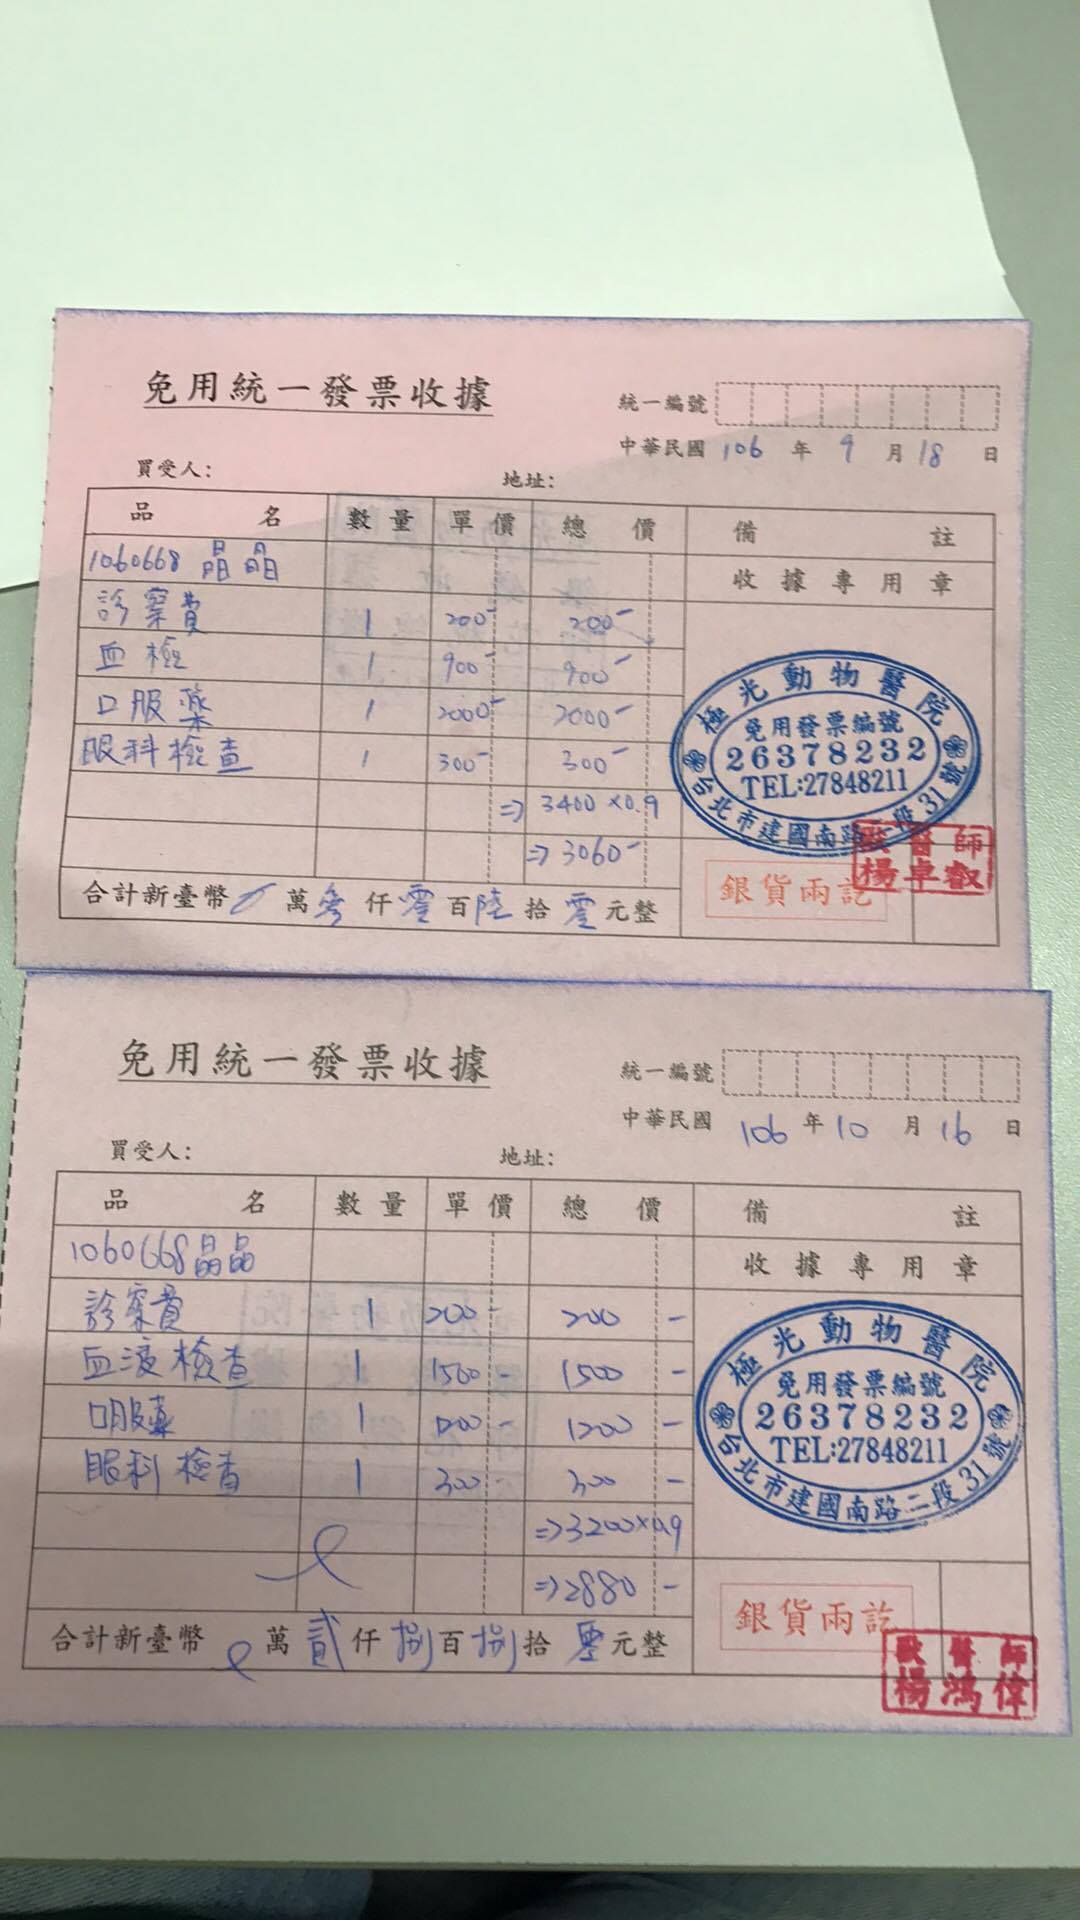 免用統一發票收據
統一編號
中華民國 106 年 9 月 18 日
買受人: 地址:
品名 數量 單價 總價 備註
1060668 晶晶 收據專用章
診察費 1 200- 200-
血檢 1 900- 900-
口服藥 1 2000- 2000-
眼科檢查 1 300- 300-
⇒ 3400×0.9
⇒ 3060-
極光動物醫院
免用發票編號
26378232
TEL:27848211
台北市建國南路二段31號
獸醫師
楊卓叡
銀貨兩訖
合計新臺幣 萬參仟零百陸拾零元整
免用統一發票收據
統一編號
中華民國 106 年 10 月 16 日
買受人: 地址:
品名 數量 單價 總價 備註
1060668晶晶 收據專用章
診察費 1 200- 200-
血液檢查 1 1500- 1500-
口服藥 1 1200- 1200-
眼科檢查 1 300- 300-
⇒3200×0.9
⇒2880-
極光動物醫院
免用發票編號
26378232
TEL:27848211
台北市建國南路二段31號
銀貨兩訖
獸醫師
楊鴻偉
合計新臺幣 萬貳仟捌百捌拾零元整